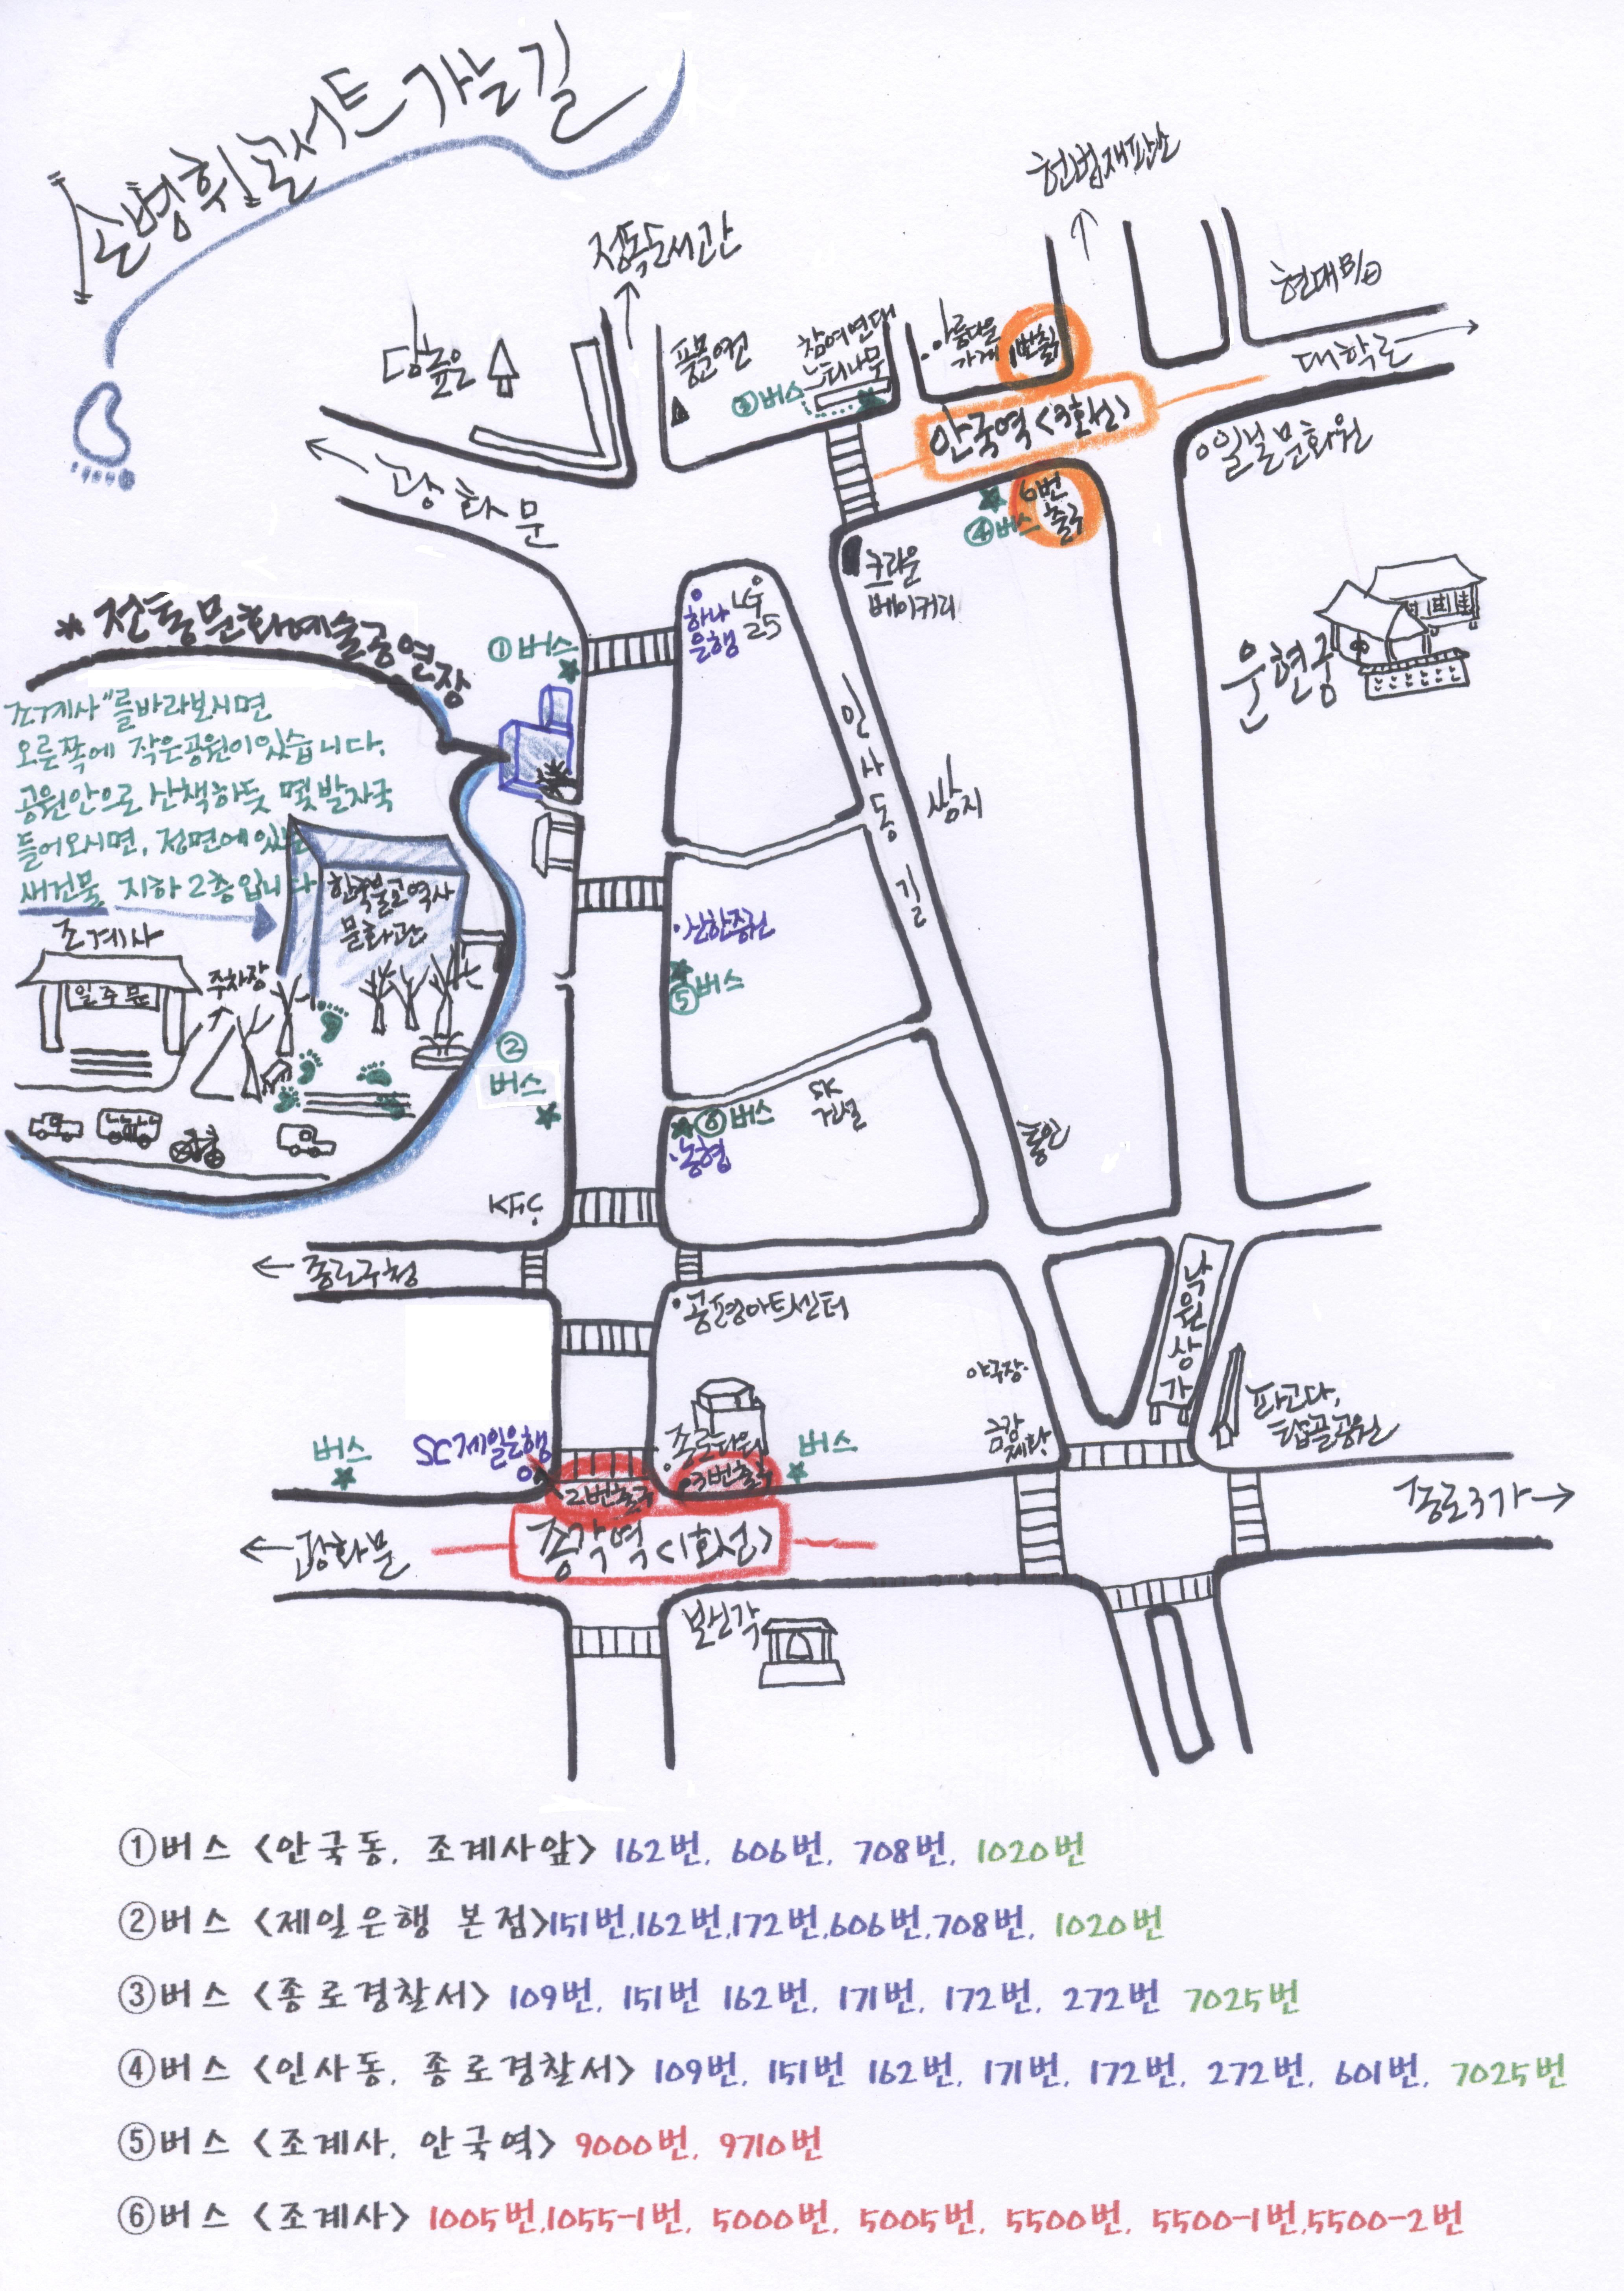 손병휘 콘서트 가는 길
헌법재판소
정독도서관
현대B/D
담높은
풍문여고
참여연대
느티나무
③버스
아름다운
가게
1번출구
대학로
안국역<3호선>
일본문화원
광화문
6번
출구
④버스
크라운
베이커리
하나
은행
LG
25
*전통문화예술공연장
①버스
운현궁
조계사"를 바라보시면
오른쪽에 작은공원이있습니다.
공원안으로 산책하듯 몇발자국
들어오시면, 정면에있는
새건물 지하2층입니다
인사동길
쌈지
한국불교역사
문화관
신한증권
조계사
일주문
주차장
⑤버스
②
버스
⑥버스
SK
건설
농협
KFC
종로구청
공평아트센터
낙원상가
금강
제화
파고다,
탑골공원
버스
SC제일은행
종로타워
버스
2번출구
3번출구
종로3가
광화문
종각역<1호선>
보신각
①버스 <안국동, 조계사앞> 162번, 606번, 708번, 1020번
②버스 <제일은행 본점>151번,162번,172번,606번,708번, 1020번
③버스 <종로경찰서> 109번, 151번 162번, 171번, 172번, 272번 7025번
④버스 <인사동, 종로경찰서> 109번, 151번 162번, 171번, 172번, 272번, 601번, 7025번
⑤버스 <조계사, 안국역> 9000번, 9710번
⑥버스 <조계사> 1005번,1055-1번, 5000번, 5005번, 5500번, 5500-1번,5500-2번